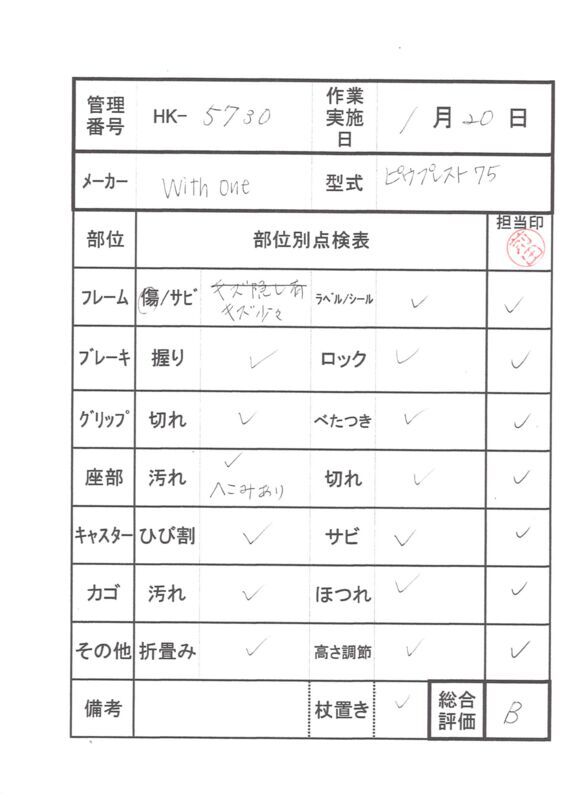 管理番号 HK- 5730 作業実施日 1月20日
メーカー With one 型式 ピウプレスト75
部位 部位別点検表 担当印
フレーム 傷/サビ キズ隠し有 ラベル/シール ✓ ✓
キズ少々
ブレーキ 握り ✓ ロック ✓ ✓
グリップ 切れ ✓ べたつき ✓ ✓
座部 汚れ ✓ 切れ ✓ ✓
へこみあり
キャスター ひび割 ✓ サビ ✓ ✓
カゴ 汚れ ✓ ほつれ ✓ ✓
その他 折畳み ✓ 高さ調節 ✓ ✓
備考 杖置き ✓ 総合評価 B